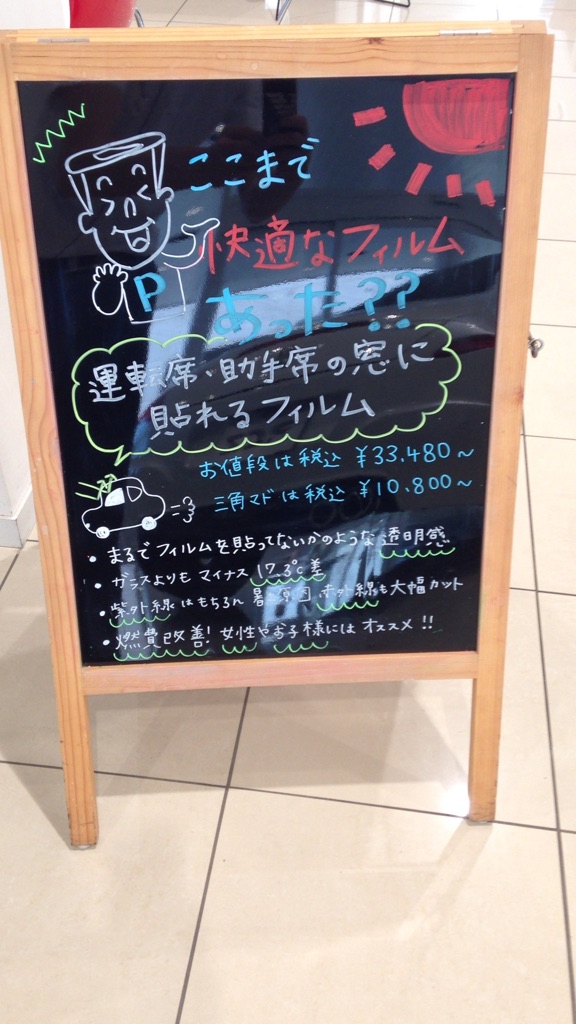 ここまで
快適なフィルム
あった??
P
運転席・助手席の窓に
貼れるフィルム
お値段は税込 ¥33.480〜
三角マドは税込 ¥10.800〜
・まるでフィルムを貼ってないかのような透明感
・ガラスよりもマイナス17.3℃差
・紫外線はもちろん 暑さ原因 赤外線も大幅カット
・燃費改善! 女性やお子様にはオススメ!!